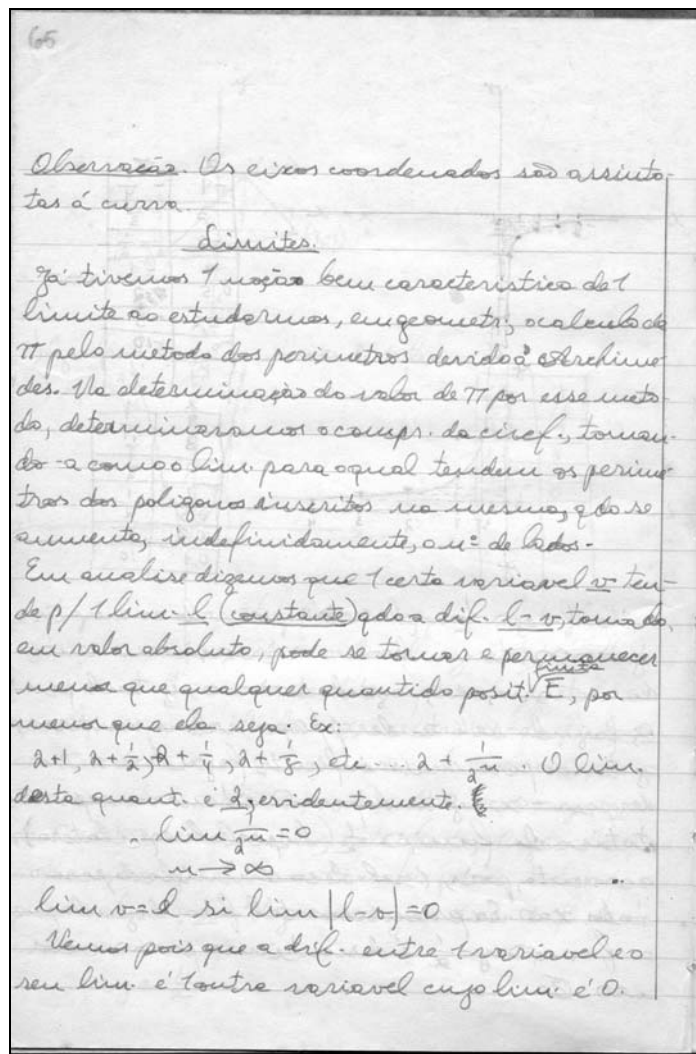 65
Observação. Os eixos coordenados são assinto-
tas á curva.
Limites.
Já tivemos 1 noção bem caracteristica de 1
limite ao estudarmos, em geometr; o calculo de
π pelo metodo dos perimetros devido à Archime
des. Na determinação do valor de π por esse meto
do, determinavamos o compr. da circf., toman-
do-a como o lim. para o qual tendem os perime
tros dos poligonos inscritos na mesma, qdo se
aumenta, indefinidamente, o nº de lados.
Em analise dizemos que 1 certa variavel v ten-
de p/ 1 lim. l (constante) qdo a dif. l-v, tomada
em valor absoluto, pode se tornar e permanecer
menor que qualquer quantida posit. finita E, por
menor que ela seja. Ex:
2+1, 2+1/2, 2+1/4, 2+1/8, etc... 2+1/2ⁿ. O lim.
desta quant. é 2, evidentemente.
lim 1/2ⁿ = 0
n → ∞
lim v = l si lim |l-v| = 0
Vemos pois que a dif. entre 1 variavel e o
seu lim. é 1 outra variavel cujo lim. é 0.